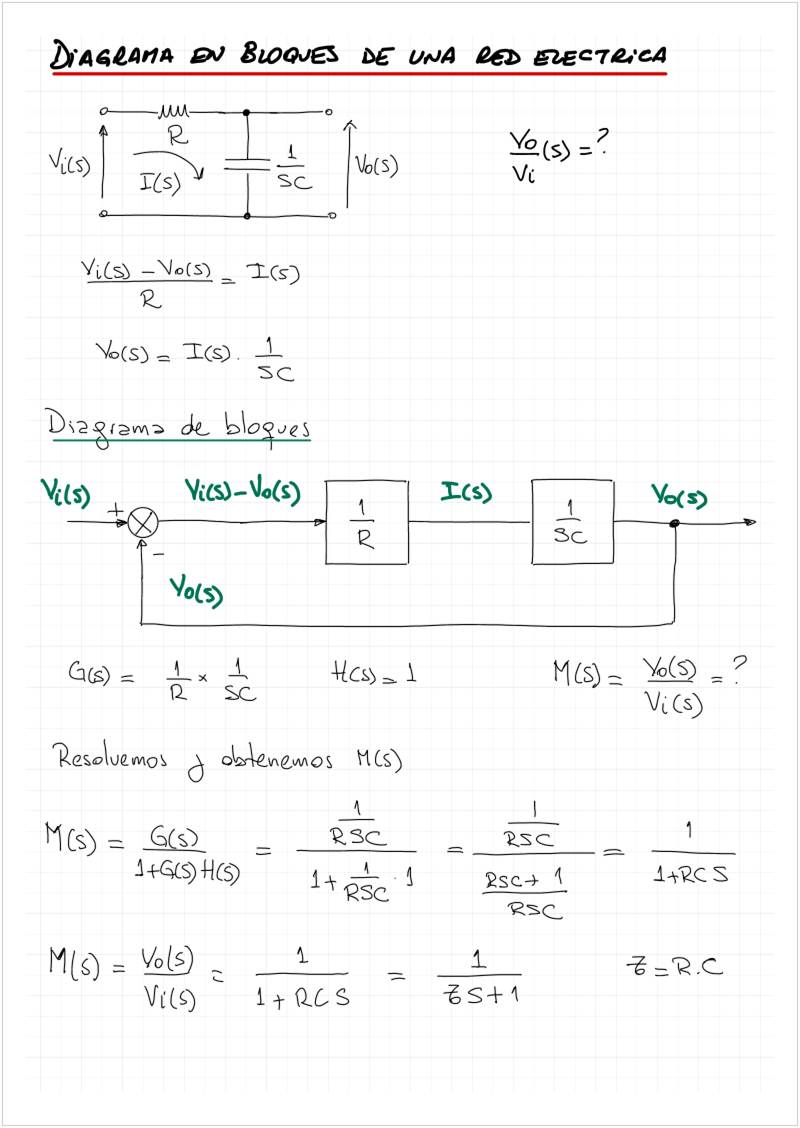 DIAGRAMA EN BLOQUES DE UNA RED ELECTRICA
R
Vi(s)
I(s)
1/SC
Vo(s)
Vo/Vi (s) = ?
(Vi(s) - Vo(s))/R = I(s)
Vo(s) = I(s) . 1/SC
Diagrama de bloques
Vi(s) Vi(s)-Vo(s) I(s) Vo(s)
+ 1/R 1/SC
-
Vo(s)
G(s) = 1/R x 1/SC H(s) = 1 M(s) = Vo(s)/Vi(s) = ?
Resolvemos y obtenemos M(s)
M(s) = G(s)/(1+G(s)H(s)) = (1/RSC)/(1 + 1/RSC . 1) = (1/RSC)/((RSC + 1)/RSC) = 1/(1+RCS)
M(s) = Vo(s)/Vi(s) = 1/(1 + RCS) = 1/(ꞇS+1) ꞇ = R.C